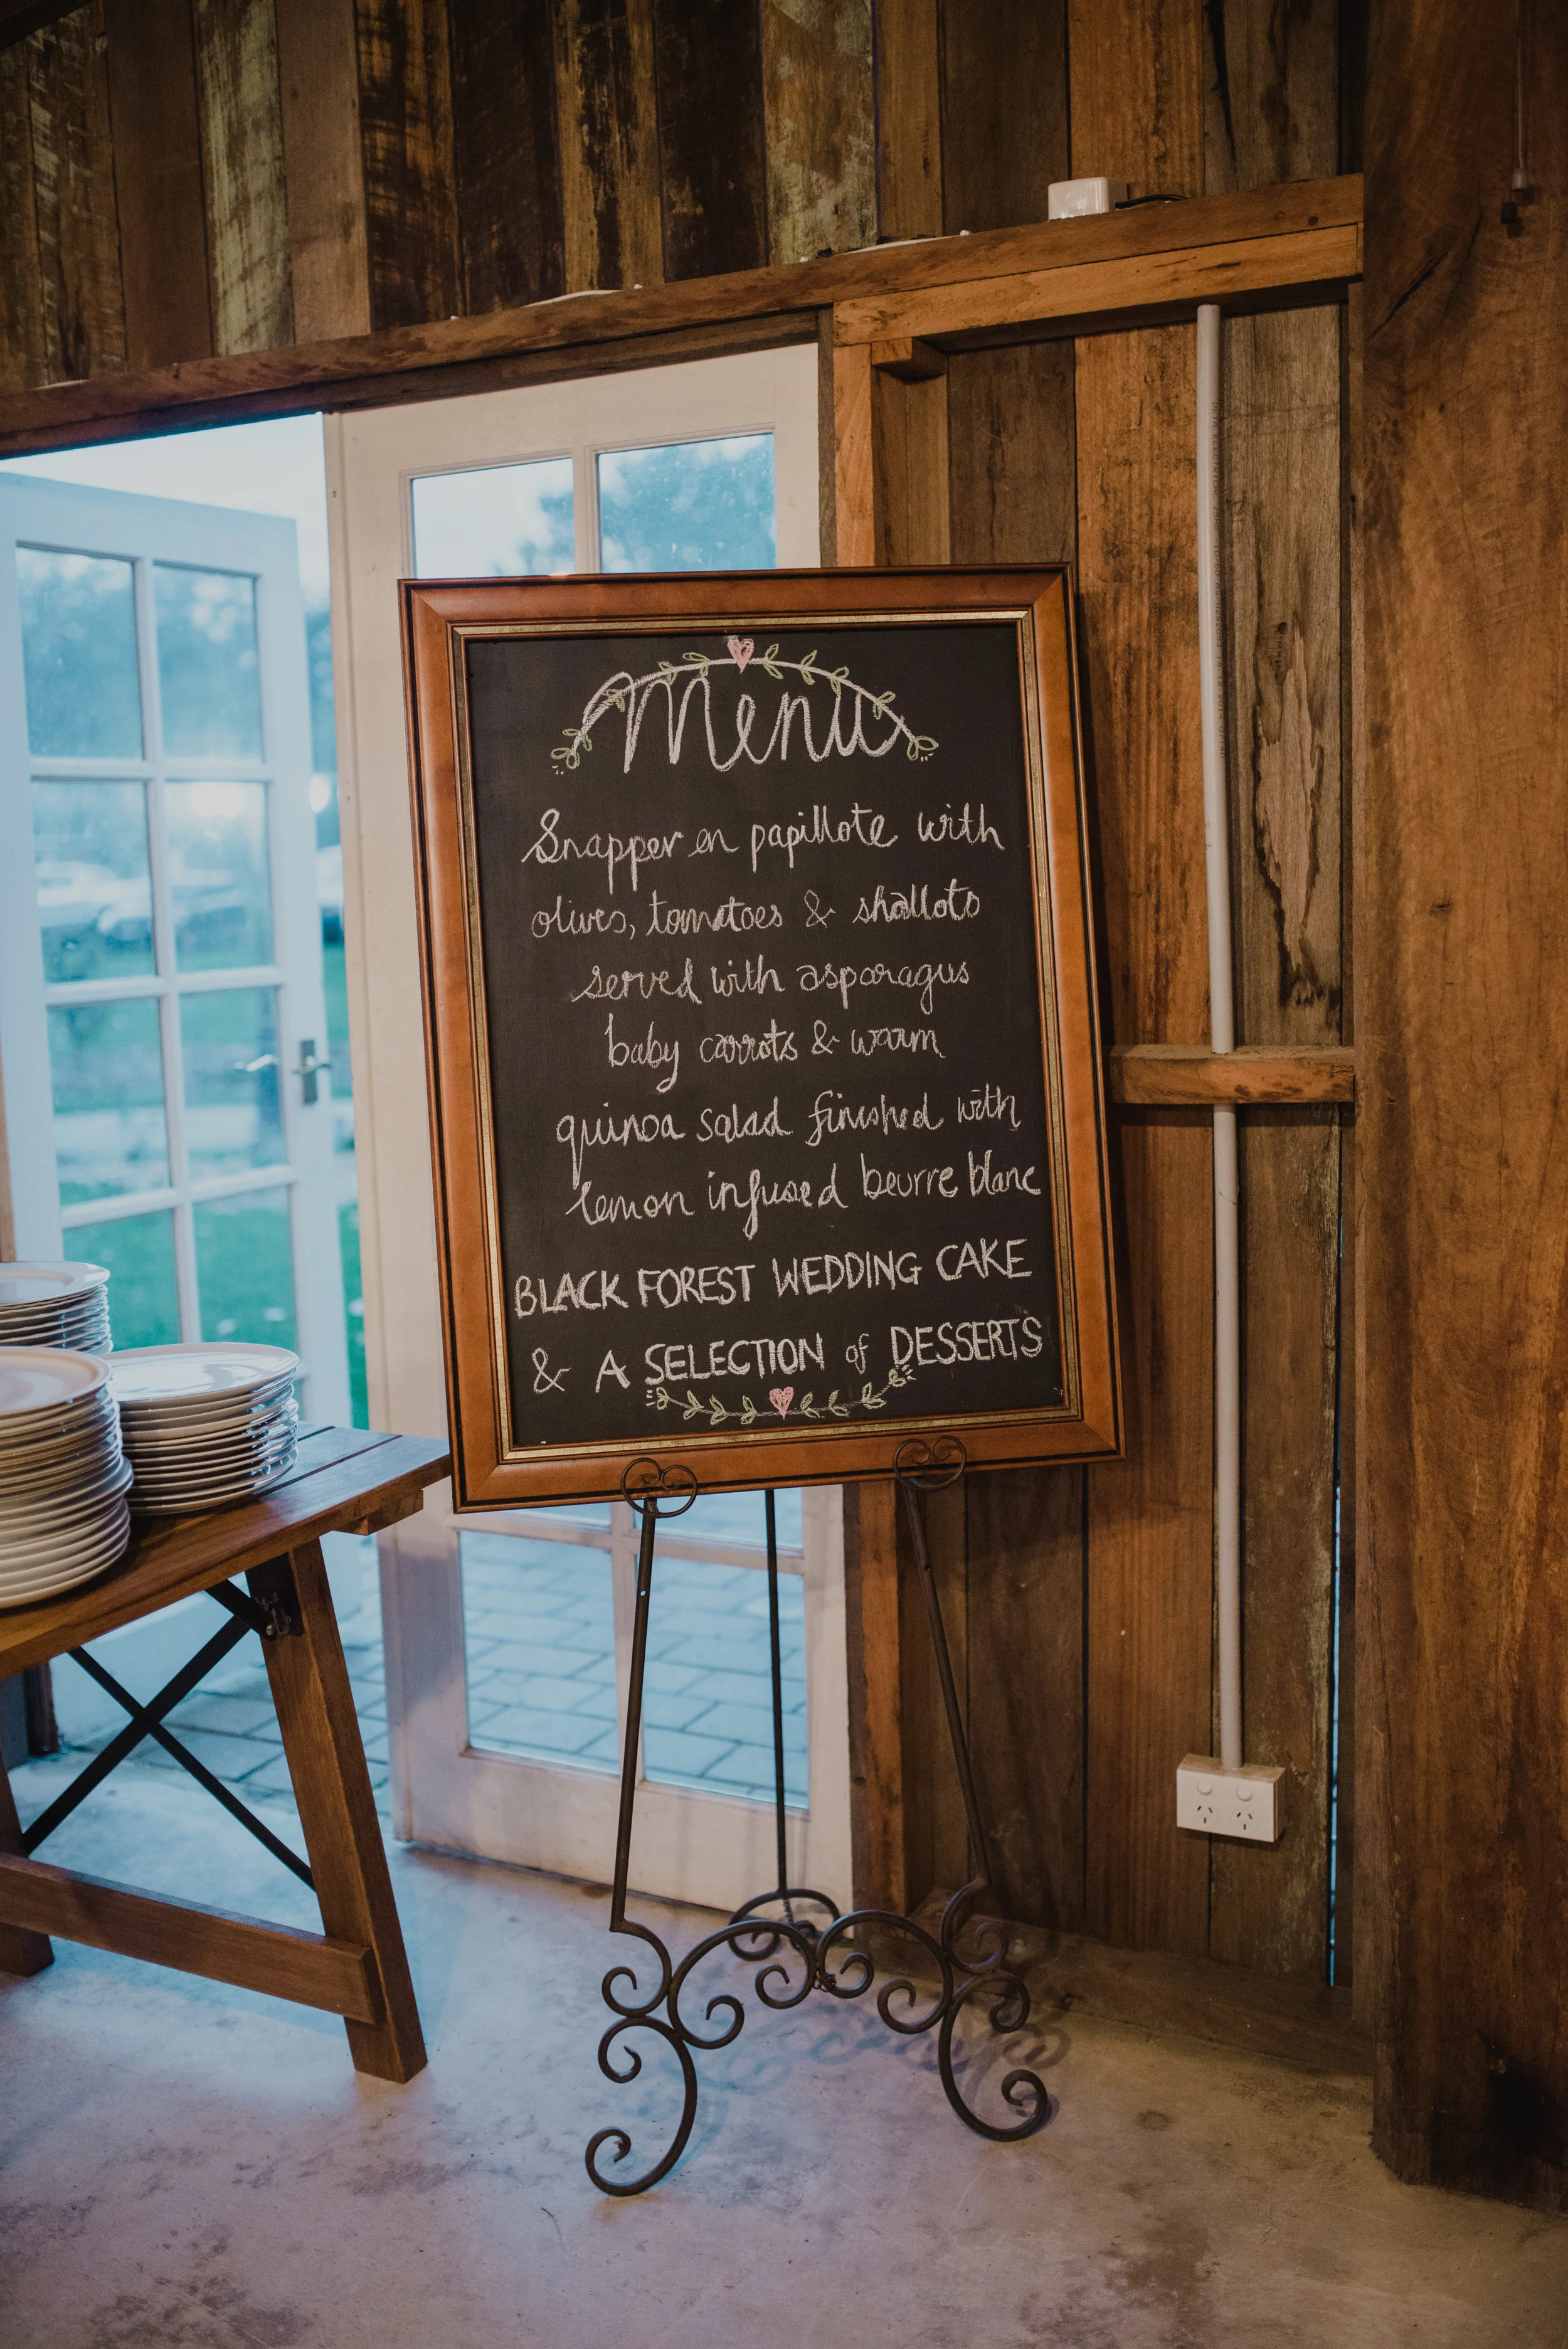 Menu
Snapper en papillote with
olives, tomatoes & shallots
served with asparagus
baby carrots & warm
quinoa salad finished with
lemon infused beurre blanc
BLACK FOREST WEDDING CAKE
& A SELECTION of DESSERTS